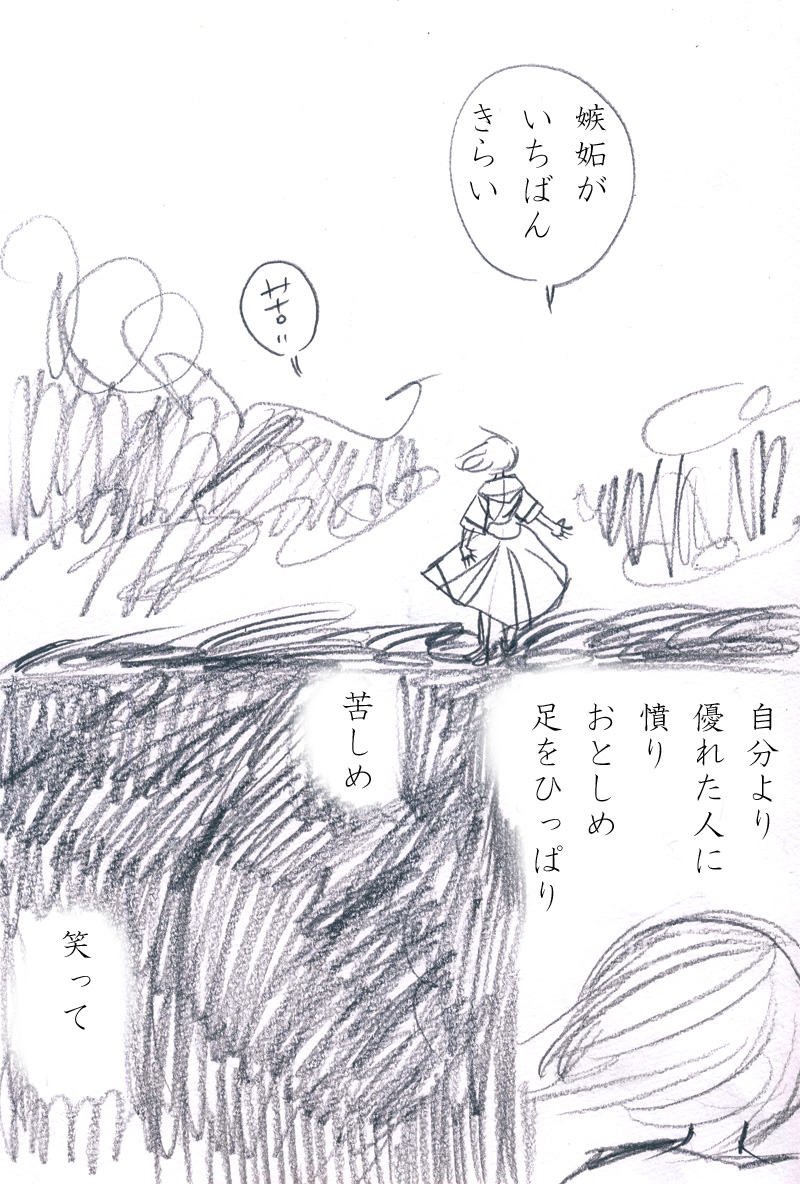 嫉妬が
いちばん
きらい
苦‥
自分より
優れた人に
憤り
おとしめ
足をひっぱり
苦しめ
笑って